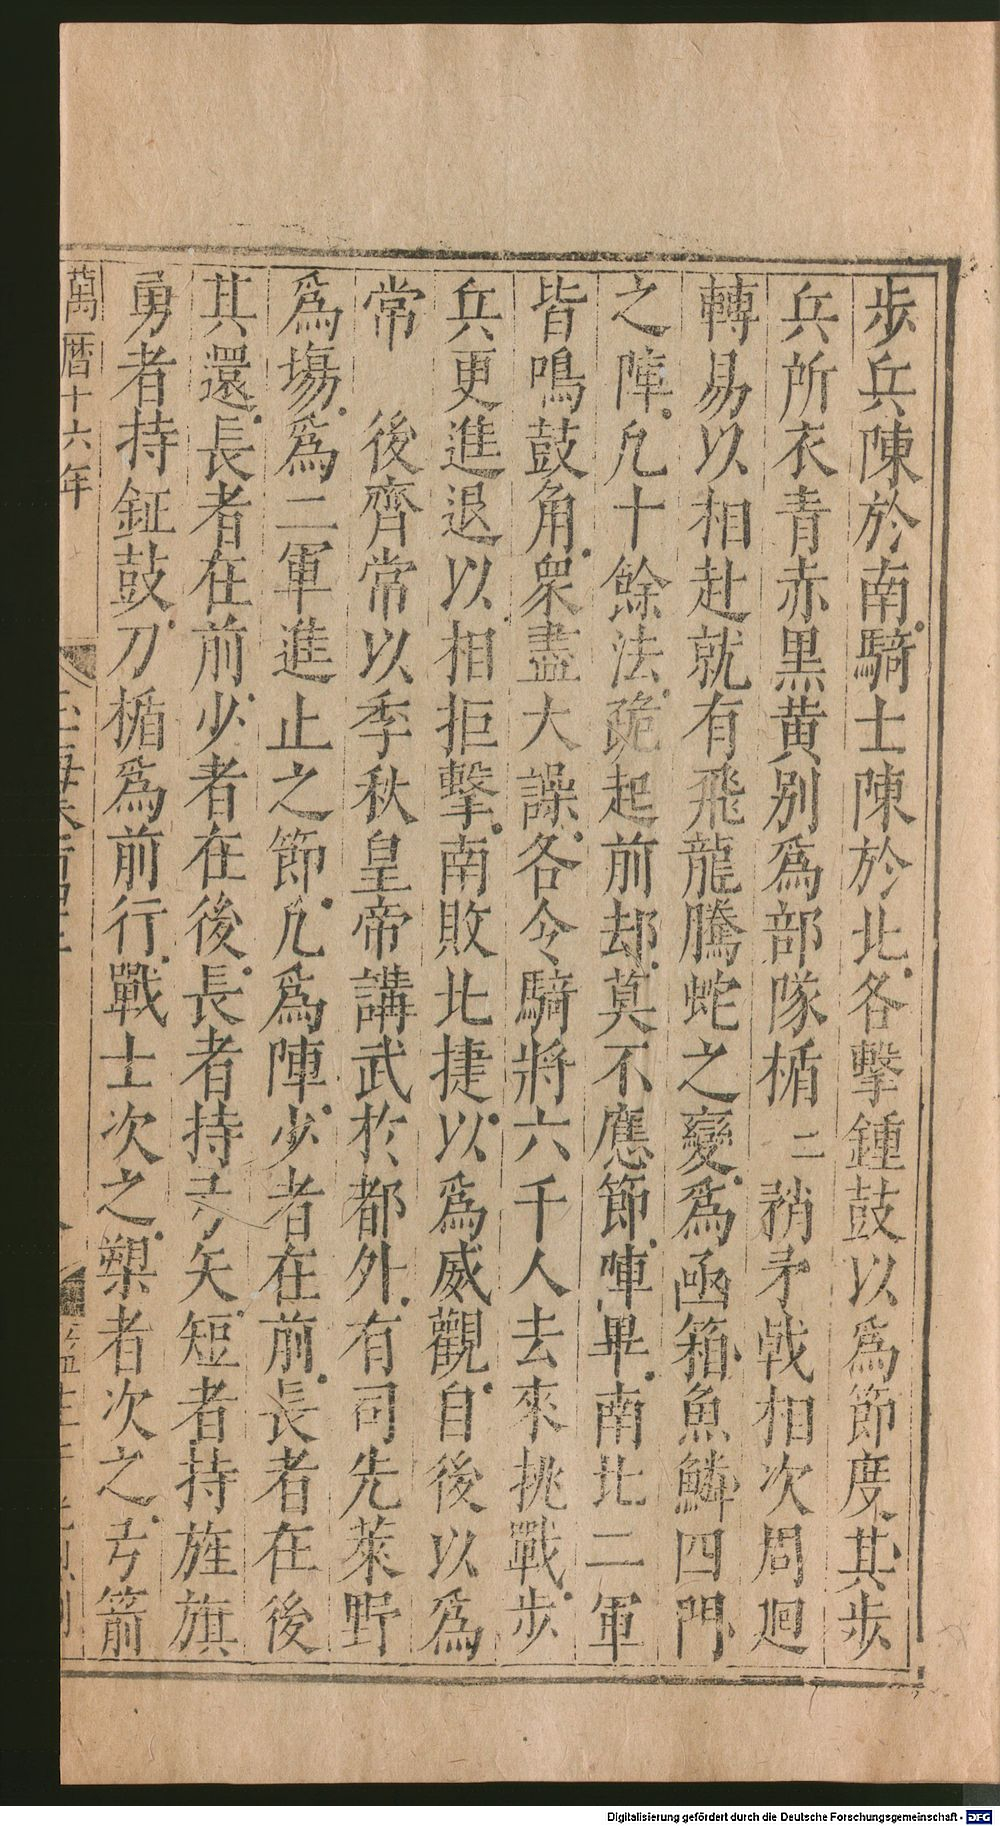 步兵陳於南騎士陳於北各擊鍾鼓以爲節度其步
兵所衣青赤黑黄別爲部隊楯二矟矛戟相次周迴
轉易以相赴就有飛龍騰蛇之變爲函箱魚鱗四門
之陣凢十餘法跪起前却莫不應節陣畢南北二軍
皆鳴鼓角衆盡大譟各令騎將六千人去來挑戰步
兵更進退以相拒擊南敗北捷以爲威觀自後以爲
常 後齊常以季秋皇帝講武於都外有司先萊野
爲塲爲二軍進止之節凢爲陣少者在前長者在後
其還長者在前少者在後長者持弓矢短者持旌旗
勇者持鉦鼓刀楯爲前行戰士次之槊者次之弓箭
萬曆十六年
Digitalisierung gefördert durch die Deutsche Forschungsgemeinschaft - DFG